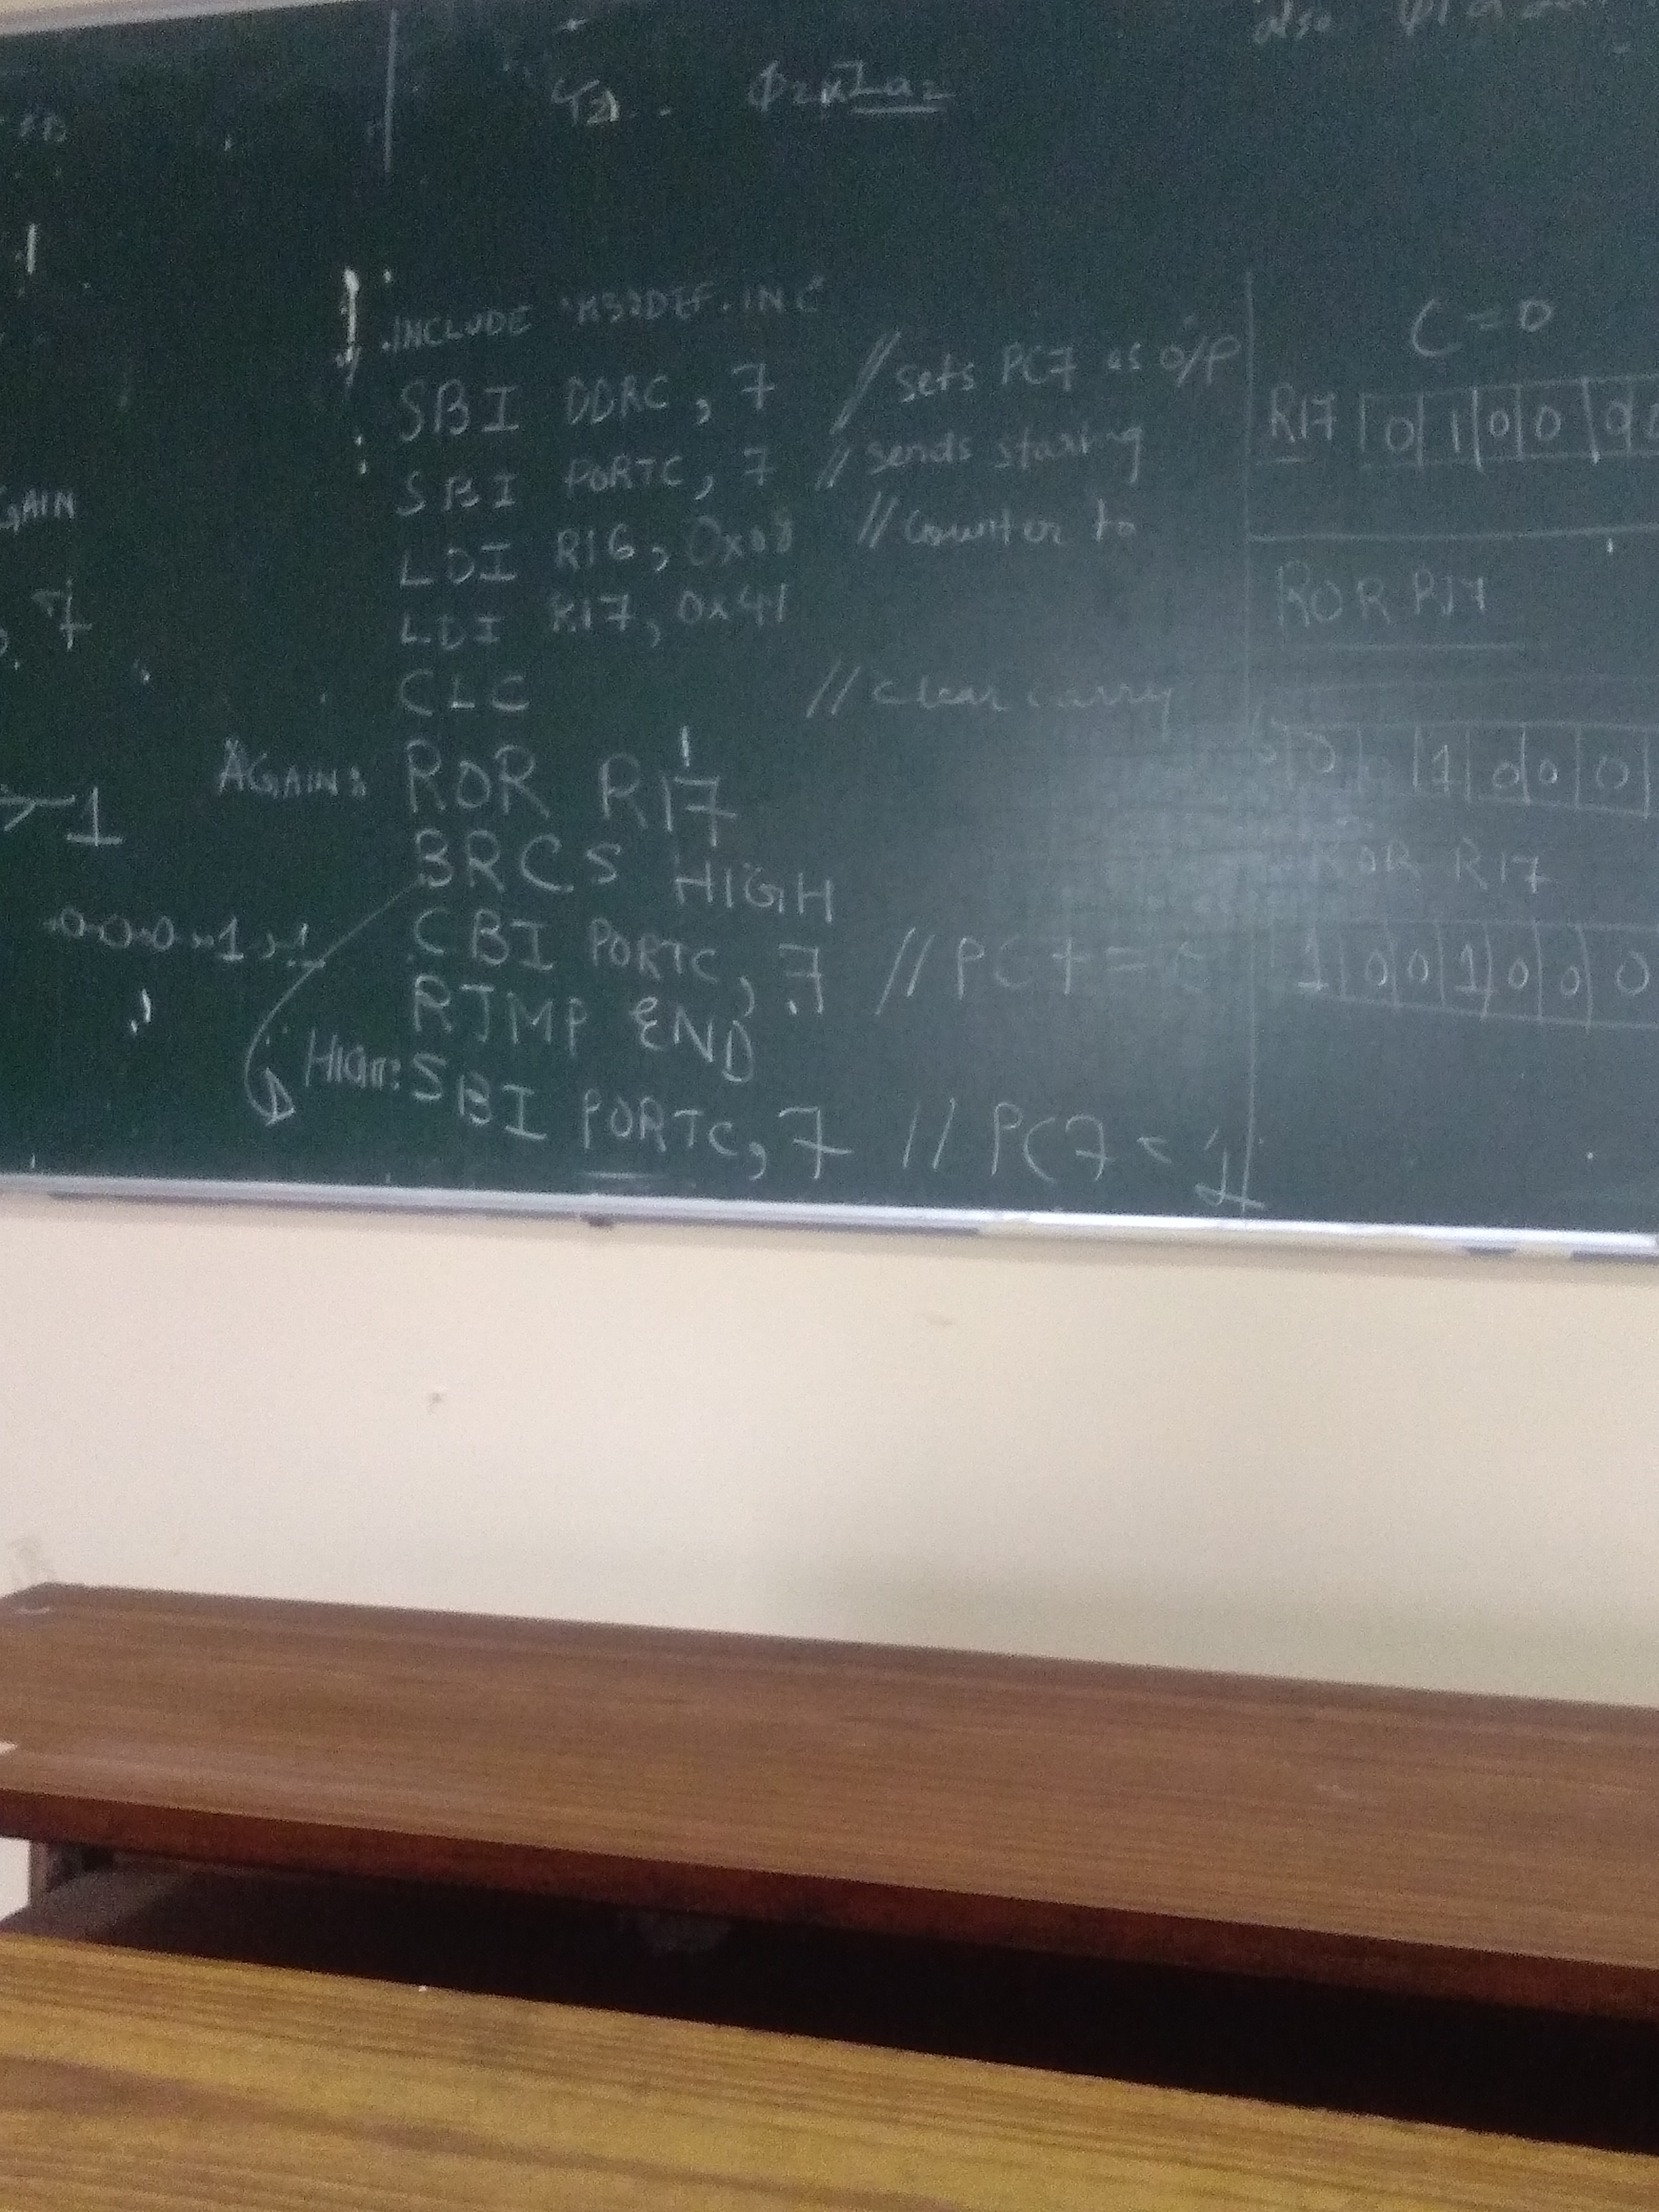 also
.INCLUDE "M32DEF.INC
SBI DDRC, 7 // sets PC7 as O/P
SBI PORTC, 7 // sends starting
LDI R16, 0x08 // Counter to
LDI R17, 0x41
CLC // clear carry
AGAIN: ROR R17
BRCS HIGH
CBI PORTC, 7 // PC7 =
RJMP END
HIGH: SBI PORTC, 7 // PC7 = 1
GAIN
, 7
1
0 0 0 1
C = 0
R17 0 1 0 0 0
ROR R17
0 0 1 0 0 0
ROR R17
1 0 0 1 0 0 0